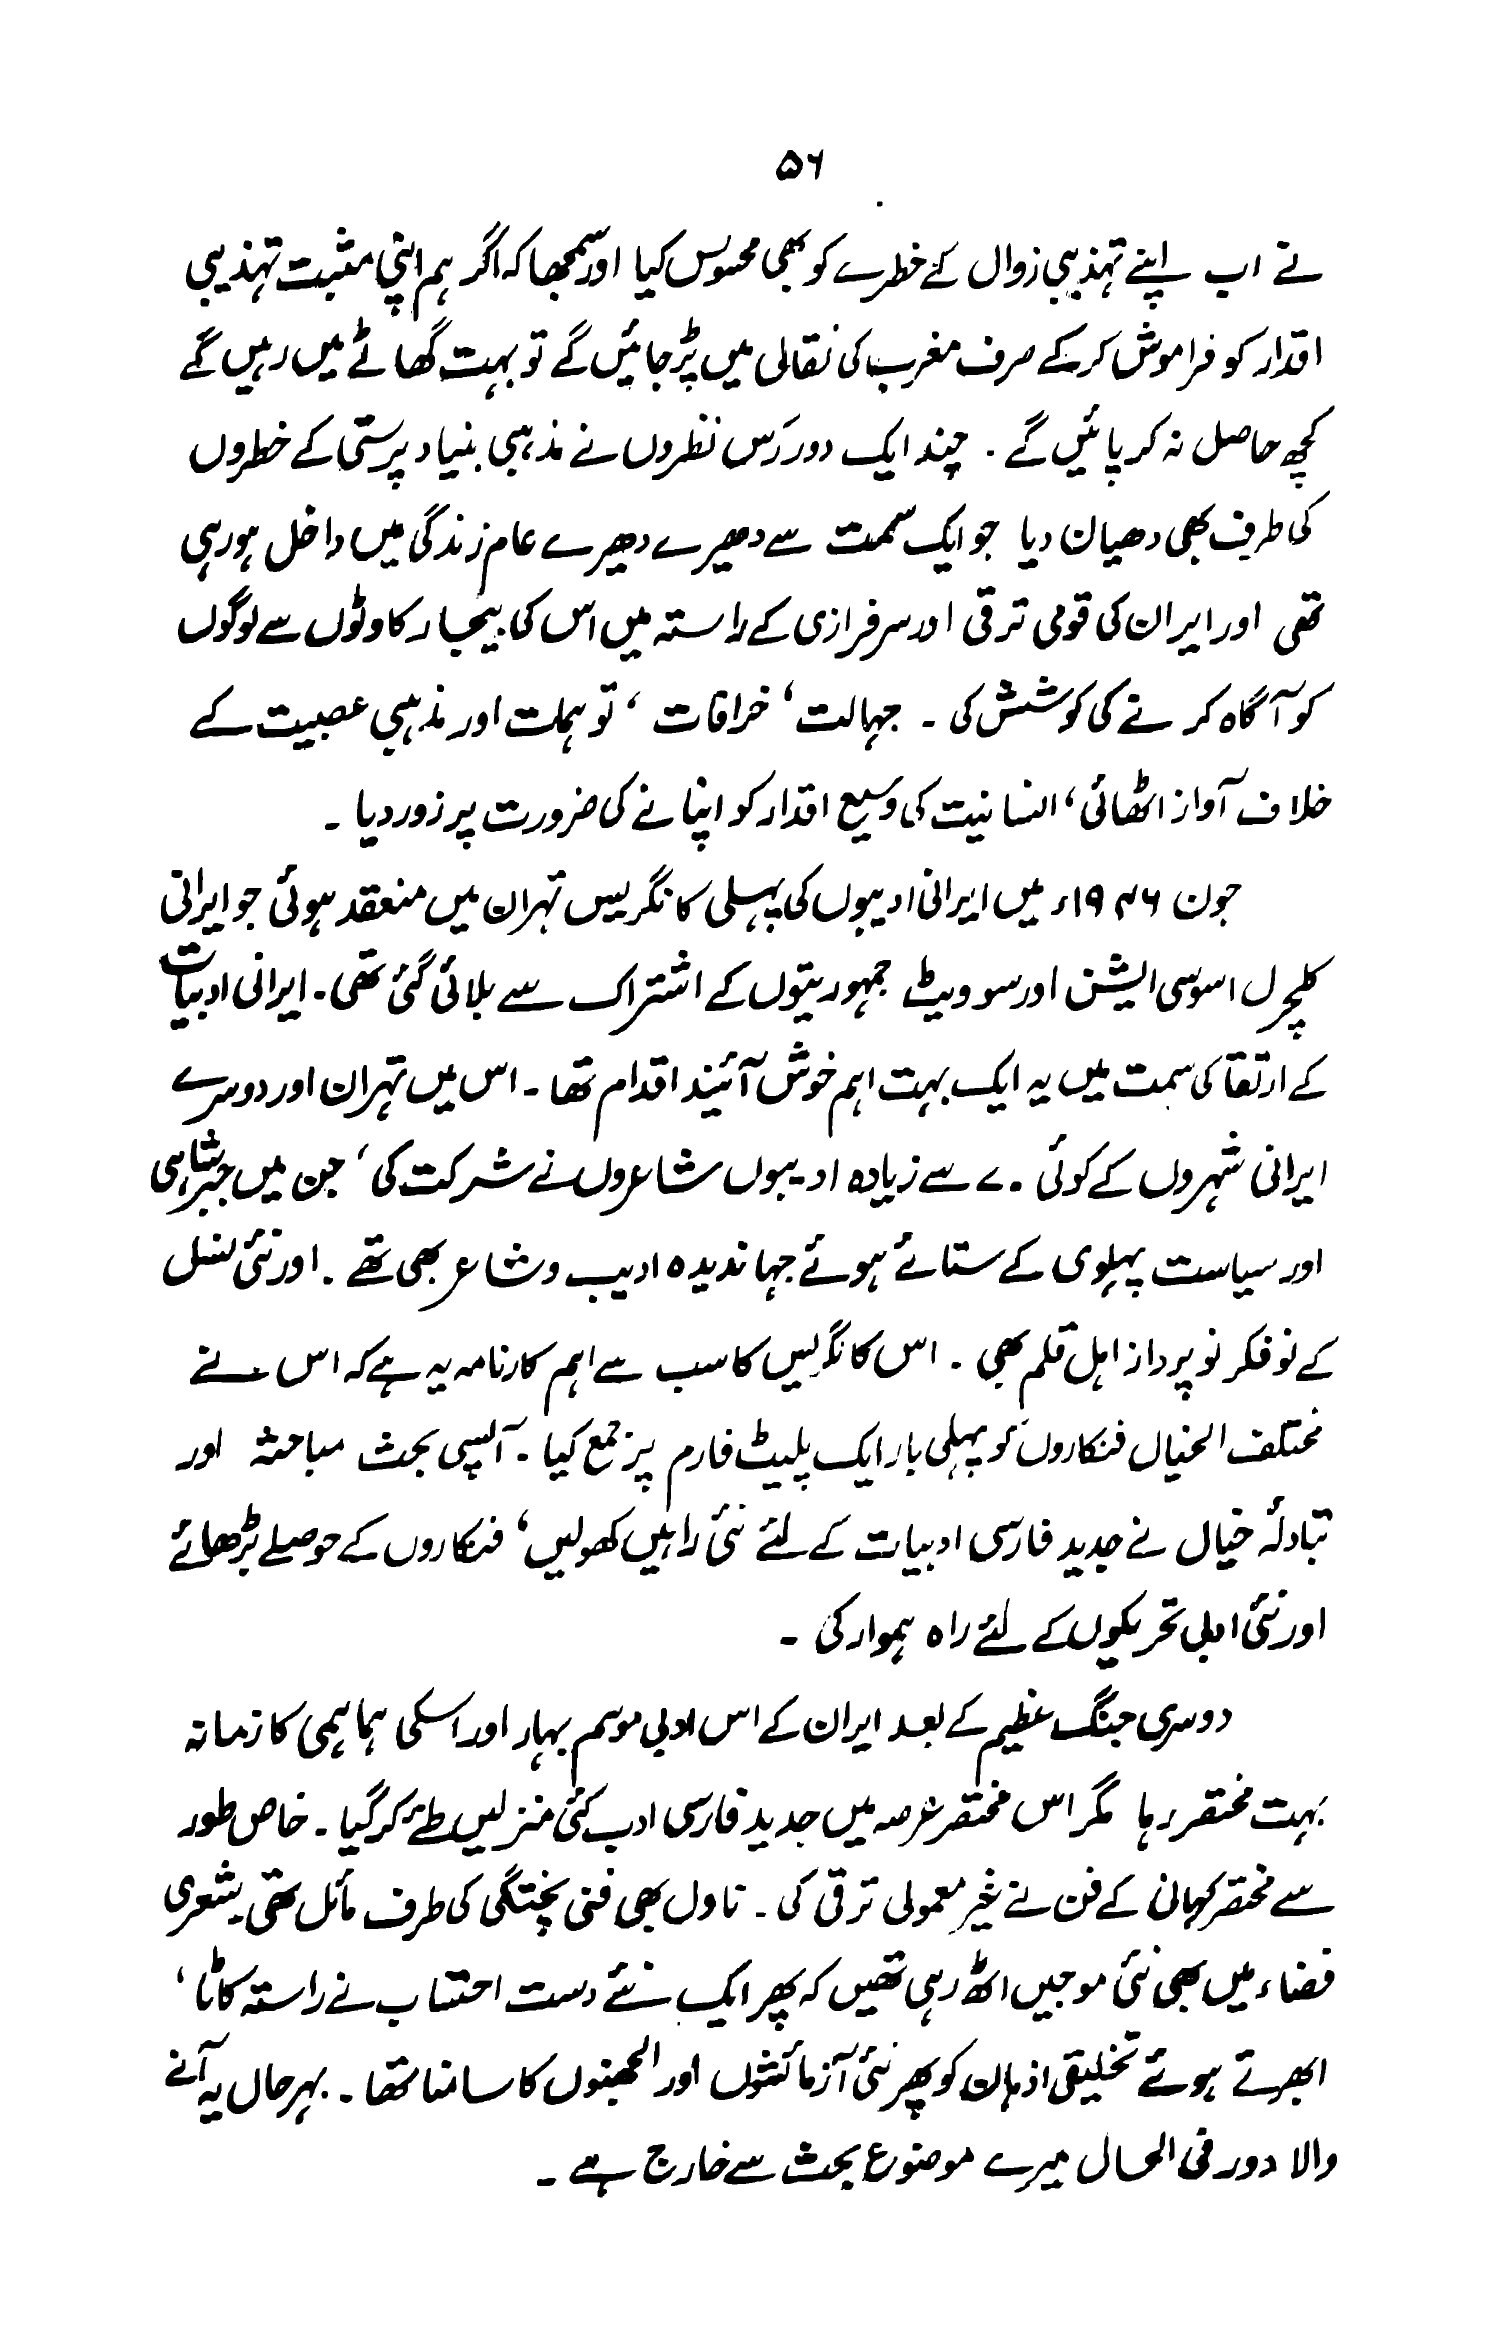 ۵۶
نے اب اپنے تہذیبی زوال کے خطرے کو بھی محسوس کیا اور سمجھا کہ اگر ہم اپنی مثبت تہذیبی
اقدار کو فراموش کرکے صرف مغرب کی نقالی میں پڑ جائیں گے تو بہت گھاٹے میں رہیں گے
کچھ حاصل نہ کر پائیں گے۔ چند ایک دور رَس نظروں نے مذہبی بنیاد پرستی کے خطروں
کی طرف بھی دھیان دیا جو ایک سمت سے دھیرے دھیرے عام زندگی میں داخل ہو رہی
تھی اور ایران کی قومی ترقی اور سرفرازی کے راستہ میں اس کی بیجا رکاوٹوں سے لوگوں
کو آگاہ کرنے کی کوشش کی۔ جہالت، خرافات، توہمات اور مذہبی عصبیت کے
خلاف آواز اٹھائی، انسانیت کی وسیع اقدار کو اپنانے کی ضرورت پر زور دیا۔
جون ۱۹۴۶ء میں ایرانی ادیبوں کی پہلی کانگریس تہران میں منعقد ہوئی جو ایرانی
کلچرل اسوسی ایشن اور سوویٹ جمہوریتوں کے اشتراک سے بلائی گئی تھی۔ ایرانی ادبیات
کے ارتقا کی سمت میں یہ ایک بہت اہم خوش آئیند اقدام تھا۔ اس میں تہران اور دوسرے
ایرانی شہروں کے کوئی ۷۰ سے زیادہ ادیبوں شاعروں نے شرکت کی، جن میں جبر شاہی
اور سیاست پہلوی کے ستائے ہوئے جہاندیدہ ادیب و شاعر بھی تھے۔ اور نئی نسل
کے نو فکر نو پرداز اہل قلم بھی۔ اس کانگریس کا سب سے اہم کارنامہ یہ ہے کہ اس نے
مختلف الخیال فنکاروں کو پہلی بار ایک پلیٹ فارم پر جمع کیا۔ آپسی بحث مباحثہ اور
تبادلۂ خیال نے جدید فارسی ادبیات کے لئے نئی راہیں کھولیں، فنکاروں کے حوصلے بڑھائے
اور نئی ادبی تحریکوں کے لئے راہ ہموار کی۔
دوسری جنگ عظیم کے بعد ایران کے اس ادبی موسم بہار اور اسکی ہماہمی کا زمانہ
بہت مختصر رہا مگر اس مختصر عرصہ میں جدید فارسی ادب کئی منزلیں طئے کر گیا۔ خاص طور
سے مختصر کہانی کے فن نے غیر معمولی ترقی کی۔ ناول بھی فنی پختگی کی طرف مائل تھی۔ شعری
فضاء میں بھی نئی موجیں اٹھ رہی تھیں کہ پھر ایک نئے دست احتساب نے راستہ کاٹا،
ابھرتے ہوئے تخلیقی اذہان کو پھر نئی آزمائشوں اور الجھنوں کا سامنا تھا۔ بہرحال یہ آنے
والا دور فی الحال میرے موضوع بحث سے خارج ہے۔